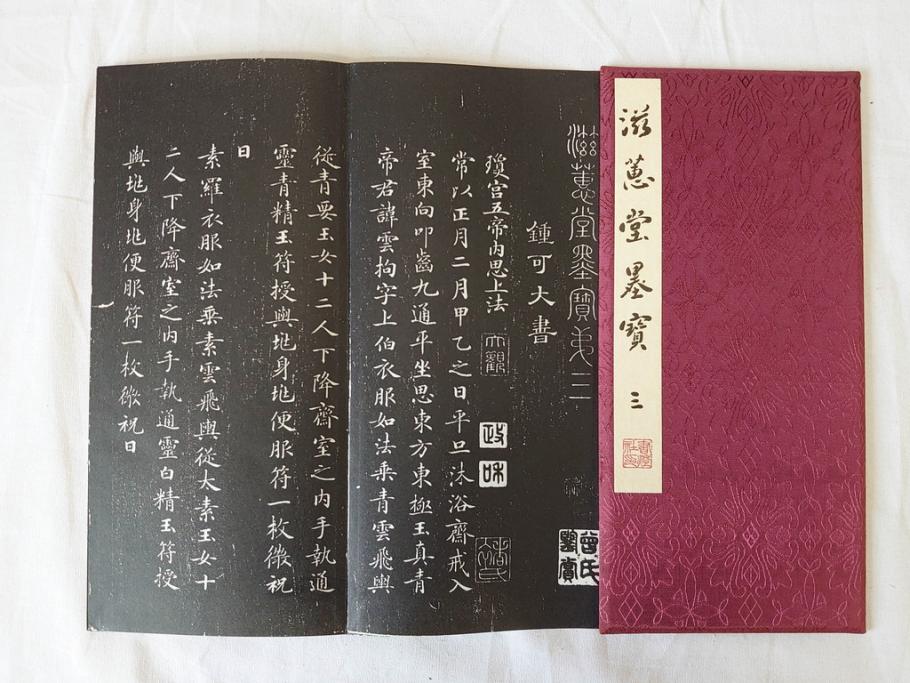 滋蕙堂墨寶 三
滋蕙堂墨寶弟三
鍾可大書
瓊宫五帝内思上法
大觀
政和
曾氏鑒賞
常以正月二月甲乙之日平旦沐浴齋戒入
室東向叩齒九通平坐思東方東極玉真青
帝君諱雲拘字上伯衣服如法乗青雲飛輿
從青要玉女十二人下降齋室之内手執通
靈青精玉符授與垗身垗便服符一枚微祝
曰
素羅衣服如法乗素雲飛輿從太素玉女十
二人下降齋室之内手執通靈白精玉符授
與垗身垗便服符一枚微祝曰